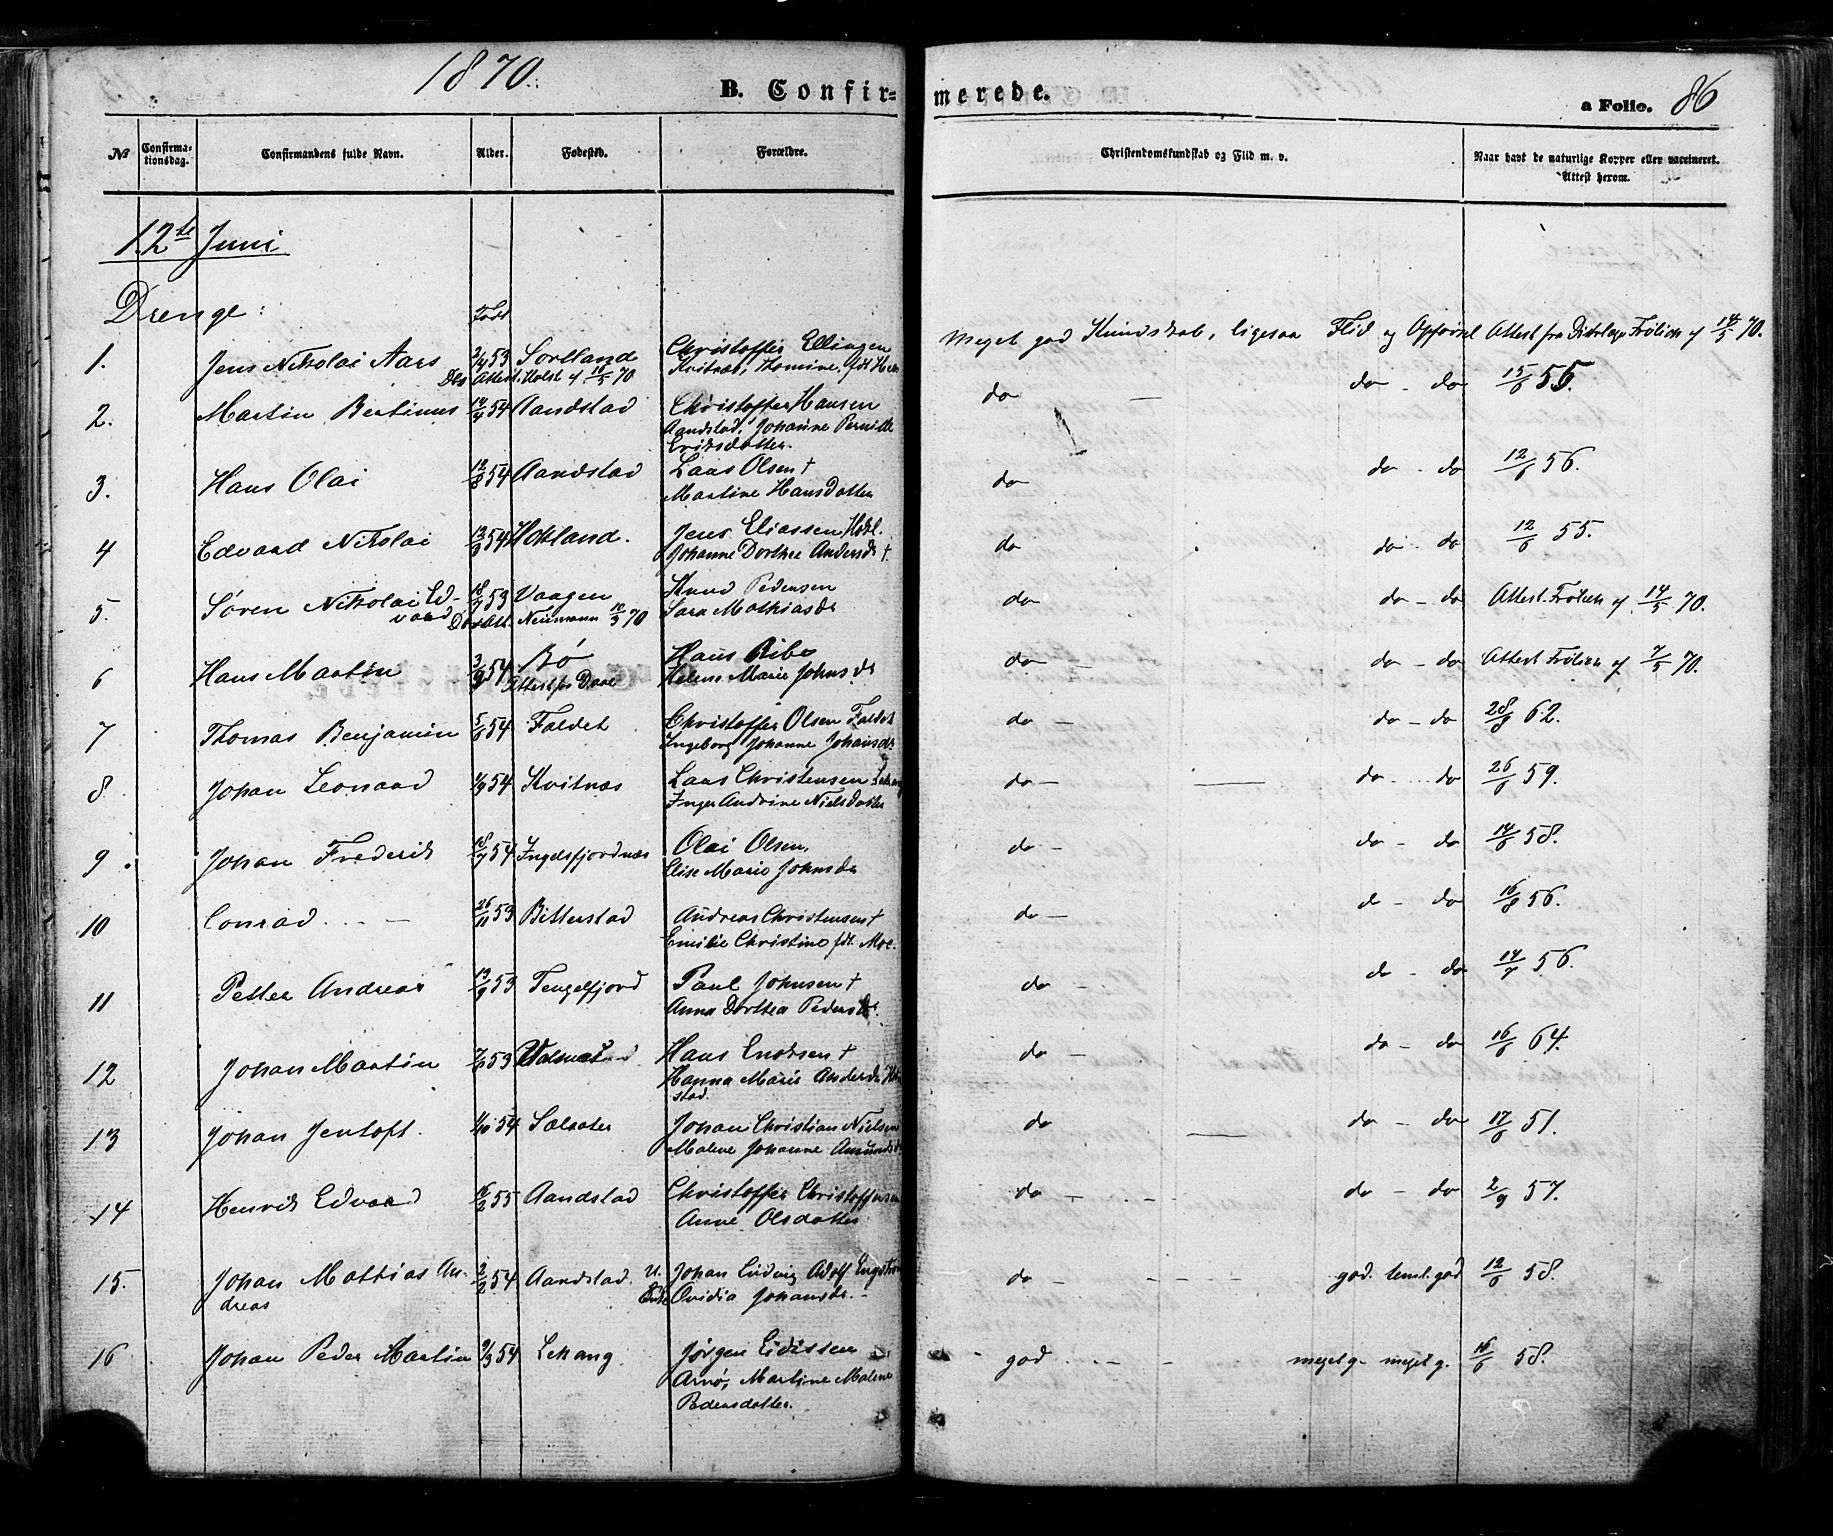 1870.
B. Confirmerede.
a Folio. 86
No
Confirmationsdag.
Confirmandens fulde Navn.
Alder.
Fødested.
Forældre.
Christendomskundskab og Flid m. v.
Naar havt de naturlige Kopper eller vaccineret. Attest herom.
12te Juni
Drenge:
Født
1. Jens Nikolai Aars 53 Sortland Christoffer Ellingen meget god Kundskab, ligesaa Flid og Opførsel Attest fra Frølich af 14/5 70.
Attest Holst af 16/5 70 Kvitnæs, Thomine, fdt
2. Martin Bertinus 54 Aandstad Christoffer Hansen do - do - do 15/6 55.
Aandstad, Johanne Pernille
Eriksdatter.
3. Hans Olai 12/8 54 Aandstad Lars Olsen † do do - do 12/6 56.
Martine Hansdatter
4 Edvard Nikolai 54 Hokland. Jens Eliassen Hokl. do do - do 12/6 55.
Johanne Dorthea Andersdr †.
5. Søren Nikolai Ed- 18/7 53 Vaagen Knud Pedersen do do - do Attest Frølich af 14/5 70.
vard Att. Neumann 10/5 70 Sara Mathiasdr
6 Hans Martin 54 Bø Hans Ribe do - do - do Attest Frølich af 7/5 70.
Attest fra Daae Helene Marie Johnsdr
7 Thomas Benjamin 5/6 54 Faldet Christoffer Olsen Faldet do - do - do 28/8 62.
Ingeborg Johanne Johansdr
8 Johan Leonard 54 Kvitnæs Lars Christensen Lekang do - do - do 26/6 59.
Inger Andrine Nielsdatter
9 Johan Frederik 18/7 54 Ingelsfjordnæs Olai Olsen, do - do - do 14/6 58.
Elise Marie Johnsdr
10 Conrad 26/11 53 Bitterstad Andreas Christensen † do - do - do 16/8 56.
Emilie Christine fdt. Moe.
11 Petter Andreas 19/9 53 Tengelfjord Paul Johnsen † do - do - do 14/7 56.
Anna Dorthea Pedersdr.
12 Johan Martin 53 Hans Endresen † do - do - do 16/6 64.
Hanna Marie Andersdr
stad.
13 Johan Jentoft. 54 Sælsater Johan Christian Nielsen do do - do 17/6 51.
Malene Johanne Amundsdr
14 Henrik Edvard 16/2 55 Aandstad Christoffer Christoffersen do - do - do 2/9 57.
Anne Olsdatter
15. Johan Mathias An- 2/2 54 Aandstad. U. Johan Ludvig Adolf Engstrøm do - god. teml. god 12/6 58.
dreas Ovidia Johansdr. -
16 Johan Peder Martin 9/3 54 Lekang. Jørgen Eidissen god - meget g. meget g. 16/6 58.
Arnø, Martine Malene
Pedersdatter.